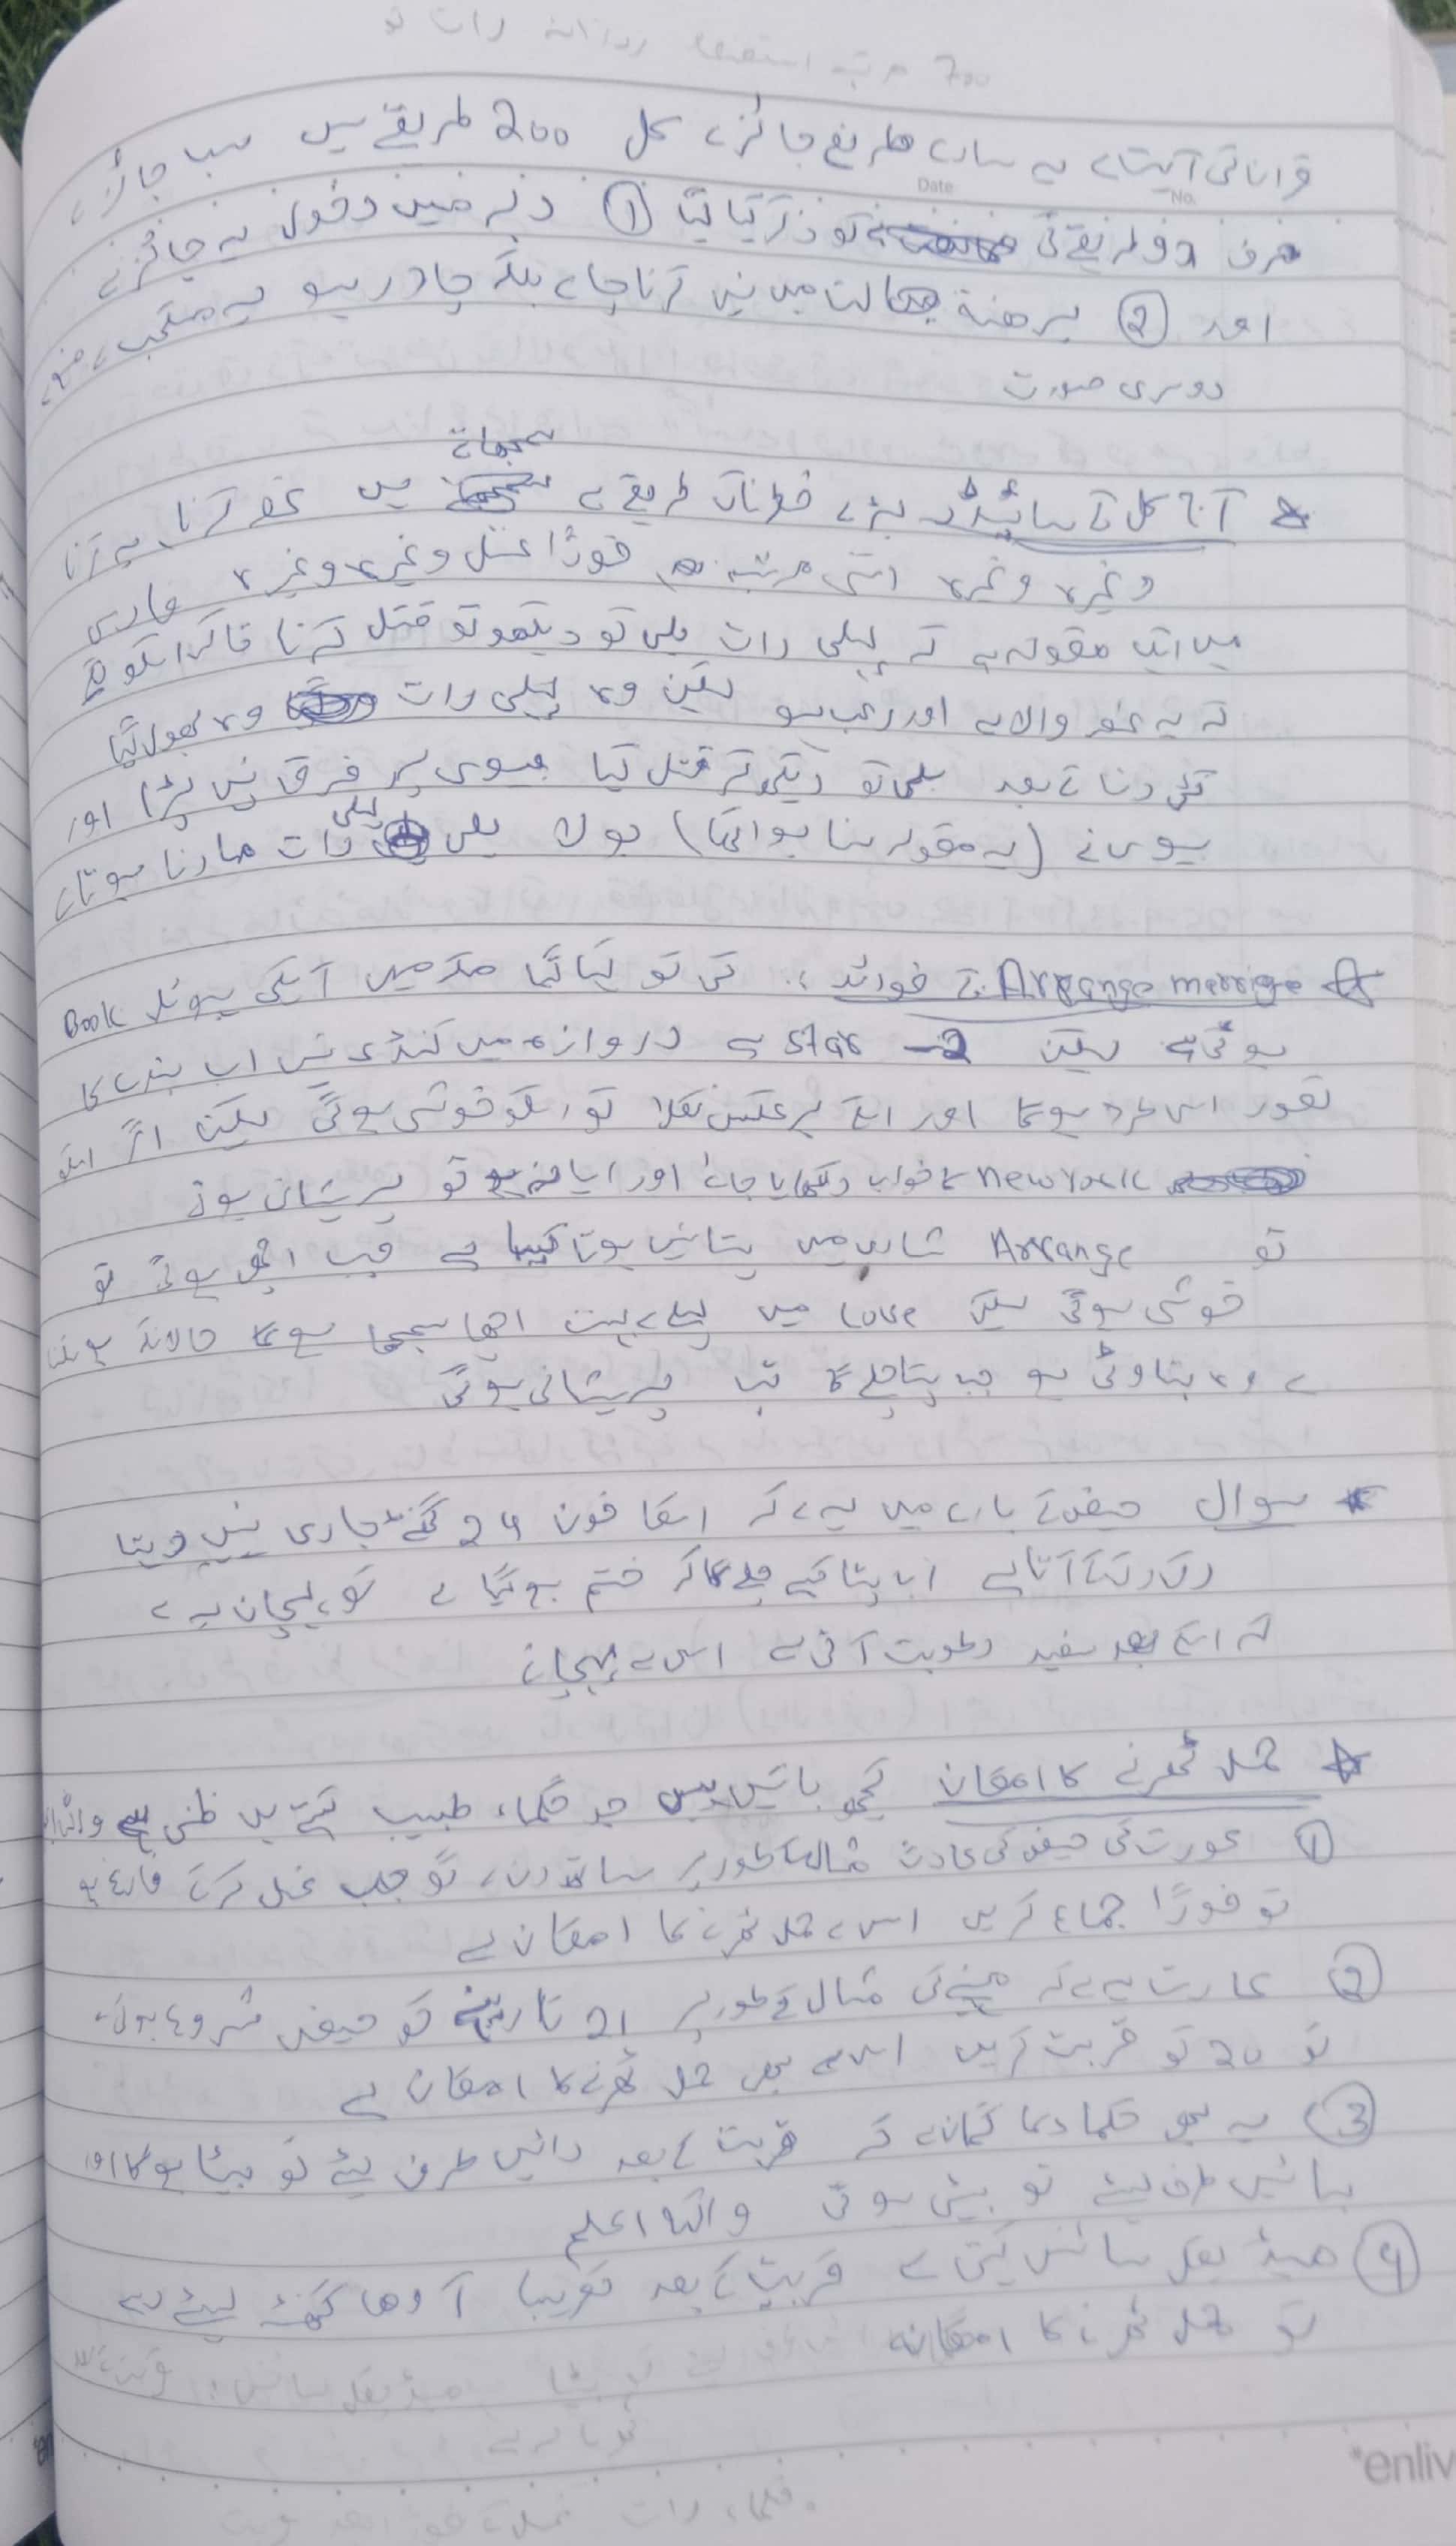 700 مرتبہ استغفار روزانہ رات کو
قرانی آیت ہے یہ سارے طریقے جائز ہے کل 200 طریقے ہیں سب جائز ہے
Date No.
صرف دو طریقے کی کو ذکر کیا گیا ① دبر میں دخول نہ جائز ہے
اور ② برھنہ حالت میں نہیں کرنا چاہے بلکہ چادر ہو یہ مستحب ہے
دوسری صورت
آج کل کے سائیڈ بڑے خطرناک طریقے سے سمجھاتے ہیں غصہ کرنا یہ کرنا
وغیرہ وغیرہ اتنی مرتبہ فورًا غسل وغیرہ وغیرہ فارسی
میں ایک مقولہ ہے کہ پہلی رات بلی کو دیکھو تو قتل کرنا تاکہ اسکو
کہ یہ غصہ والا ہے اور رعب ہو لیکن وہ پہلی رات وہ بھول گیا
کئی دنا کے بعد بلی کو دیکھ کر قتل کیا بیوی پر فرق نہیں پڑا اور
بیوی نے (یہ مقولہ سنا ہوا تھا) بولا بلی پہلی رات مارنا ہوتا ہے
Arrange merrige کے فوائد: کسی کو کہا گیا مکہ میں آپکی ہوٹل Book
ہو گئی ہے لیکن 2 star ہے دروازہ میں کنڈی نہیں اب بندے کا
تصور اس طرح ہوگا اور اسکے برعکس نکلا تو اسکو خوشی ہوگی لیکن اگر اسکو
new York کا خواب دکھایا جائے اور ایسا نہ ہو تو پریشان ہوتے
تو Arrange شادی میں پتا نہیں ہوتا کیسا ہے جب اچھی ہوگی تو
خوشی ہوگی لیکن Love میں پہلے بہت اچھا سمجھا ہوگا حالانکہ ہو سکتا
ہے وہ بناوٹی ہو جب پتا چلے گا تب پریشانی ہوگی
سوال حیض کے بارے میں یہ ہے کہ اسکا خون 24 گھنٹے جاری نہیں رہتا
رک رک کے آتا ہے اب پتا کیسے چلے گا کہ ختم ہو گیا ہے تو پہچان یہ ہے
کہ اسکے بعد سفید رطوبت آتی ہے اس سے پہچانے
حمل ٹھرنے کا امکان کچھ باتیں ہیں جو حکماء، طبیب کہتے ہیں ظنی ہے
① عورت کی حیض کی عادت مثال کے طور پر سات دن ہے تو جب غسل کر کے فارغ ہو
تو فورًا جماع کریں اس سے حمل ٹھرنے کا امکان ہے
② عادت یہ ہے کہ مہینے کی مثال کے طور پر 21 تاریخ کو حیض شروع ہوگی
تو 20 کو قربت کریں اس سے بھی حمل ٹھرنے کا امکان ہے
③ یہ بھی حکماء کا گمان ہے کہ قربت کے بعد دائیں طرف لیٹے تو بیٹا ہوگا اور
بائیں طرف لیٹے تو بیٹی ہوگی واللہ اعلم
④ میڈیکل سائنس کہتی ہے قربت کے بعد تقریبا آدھا گھنٹہ لیٹے رہے
تو حمل ٹھرنے کا امکان ہے
enliv